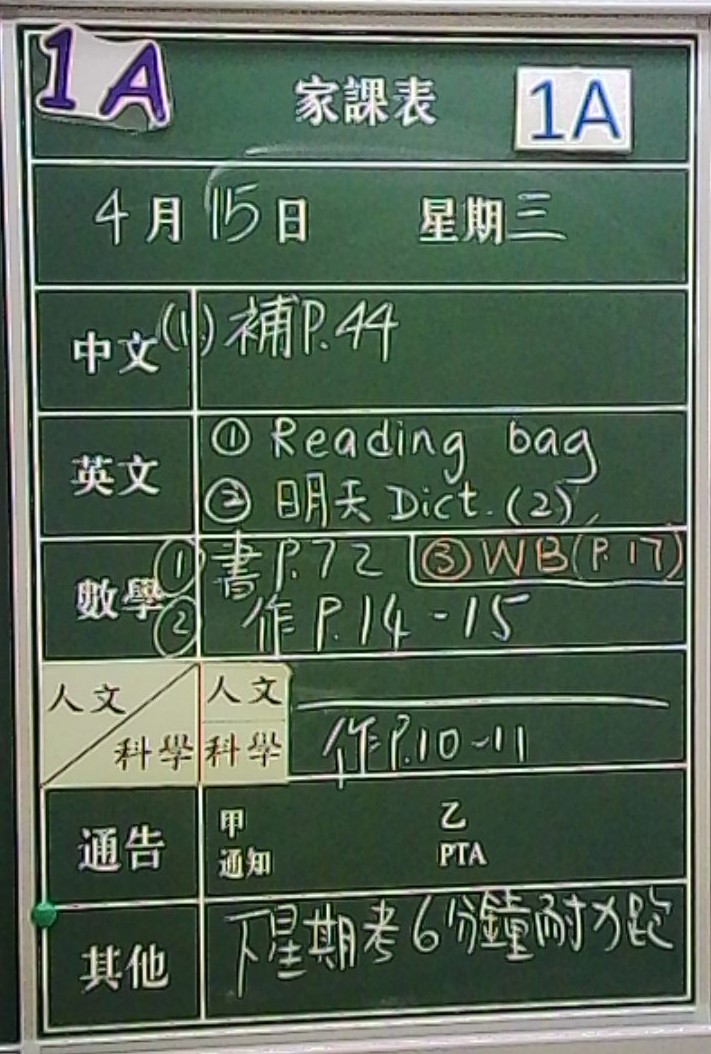 1A 家課表 1A
4月15日 星期三
中文 (1.) 補P.44
英文 ① Reading bag
② 明天 Dict. (2)
數學 ① 書P.72 ③ WB(P.17)
② 作P.14-15
人文 人文
科學 科學 作P.10-11
通告 甲 乙
通知 PTA
其他 下星期考6分鐘耐力跑